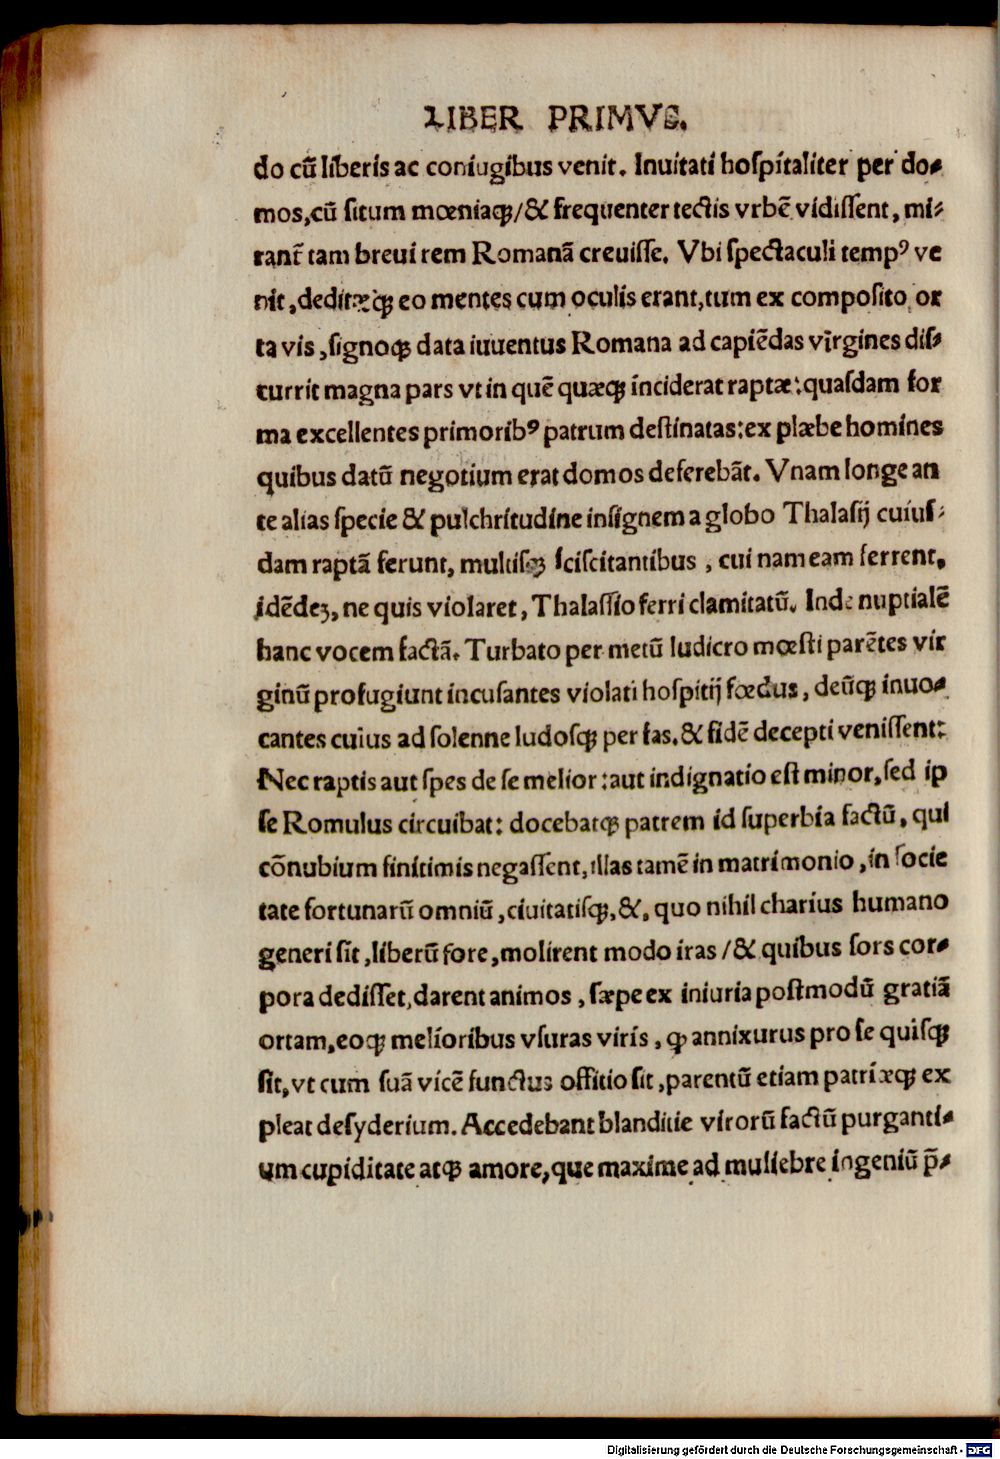 LIBER PRIMVS.
do cũ liberis ac coniugibus venit. Inuitati hospitaliter per do-
mos,cũ situm mœniaq́ꝫ/& frequenter tectis vrbẽ vidissent, mi-
rant̃ tam breui rem Romanã creuisse. Vbi spectaculi tempꝰ ve
nit,deditæq́ꝫ eo mentes cum oculis erant,tum ex composito or
ta vis ,signoq́ꝫ data iuuentus Romana ad capiẽdas virgines dis-
currit magna pars vt in quẽ quæq́ꝫ inciderat raptæ:quasdam for
ma excellentes primoribꝰ patrum destinatas:ex plæbe homines
quibus datũ negotium erat domos deferebãt. Vnam longe an
te alias specie & pulchritudine insignem a globo Thalasij cuius-
dam raptã ferunt, multisqꝫ sciscitantibus , cui nam eam ferrent,
idẽdeꝫ, ne quis violaret, Thalassio ferri clamitatũ. Inde nuptialẽ
hanc vocem factã. Turbato per metũ ludicro mœsti parẽtes vir
ginũ profugiunt incusantes violati hospitij fœdus, deũq́ꝫ inuo-
cantes cuius ad solenne ludosq́ꝫ per fas.& fidẽ decepti venissent:
Nec raptis aut spes de se melior:aut indignatio est minor,sed ip
se Romulus circuibat: docebatq́ꝫ patrem id superbia factũ, qui
cõnubium finitimis negassent,illas tamẽ in matrimonio ,in socie
tate fortunarũ omniũ ,ciuitatisq́ꝫ,&, quo nihil charius humano
generi sit ,liberũ fore,molirent modo iras /& quibus sors cor-
pora dedisset,darent animos , sæpe ex iniuria postmodũ gratiã
ortam,eoq́ꝫ melioribus vsuras viris , ꝙ annixurus pro se quisq́ꝫ
sit,vt cum suã vicẽ functus offitio sit ,parentũ etiam patriæq́ꝫ ex
pleat desyderium. Accedebant blanditie virorũ factũ purganti-
um cupiditate atq́ꝫ amore,que maxime ad muliebre ingeniũ p̃-
Digitalisierung gefördert durch die Deutsche Forschungsgemeinschaft - DFG